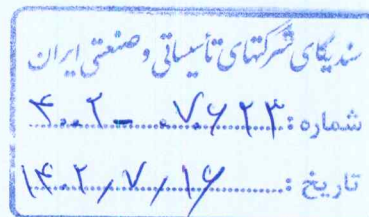 سندیکای شرکتهای تأسیساتی و صنعتی ایران
شماره: ۴۰۲ - ۰۷۶۲۳
تاریخ: ۱۴۰۲/۷/۱۶